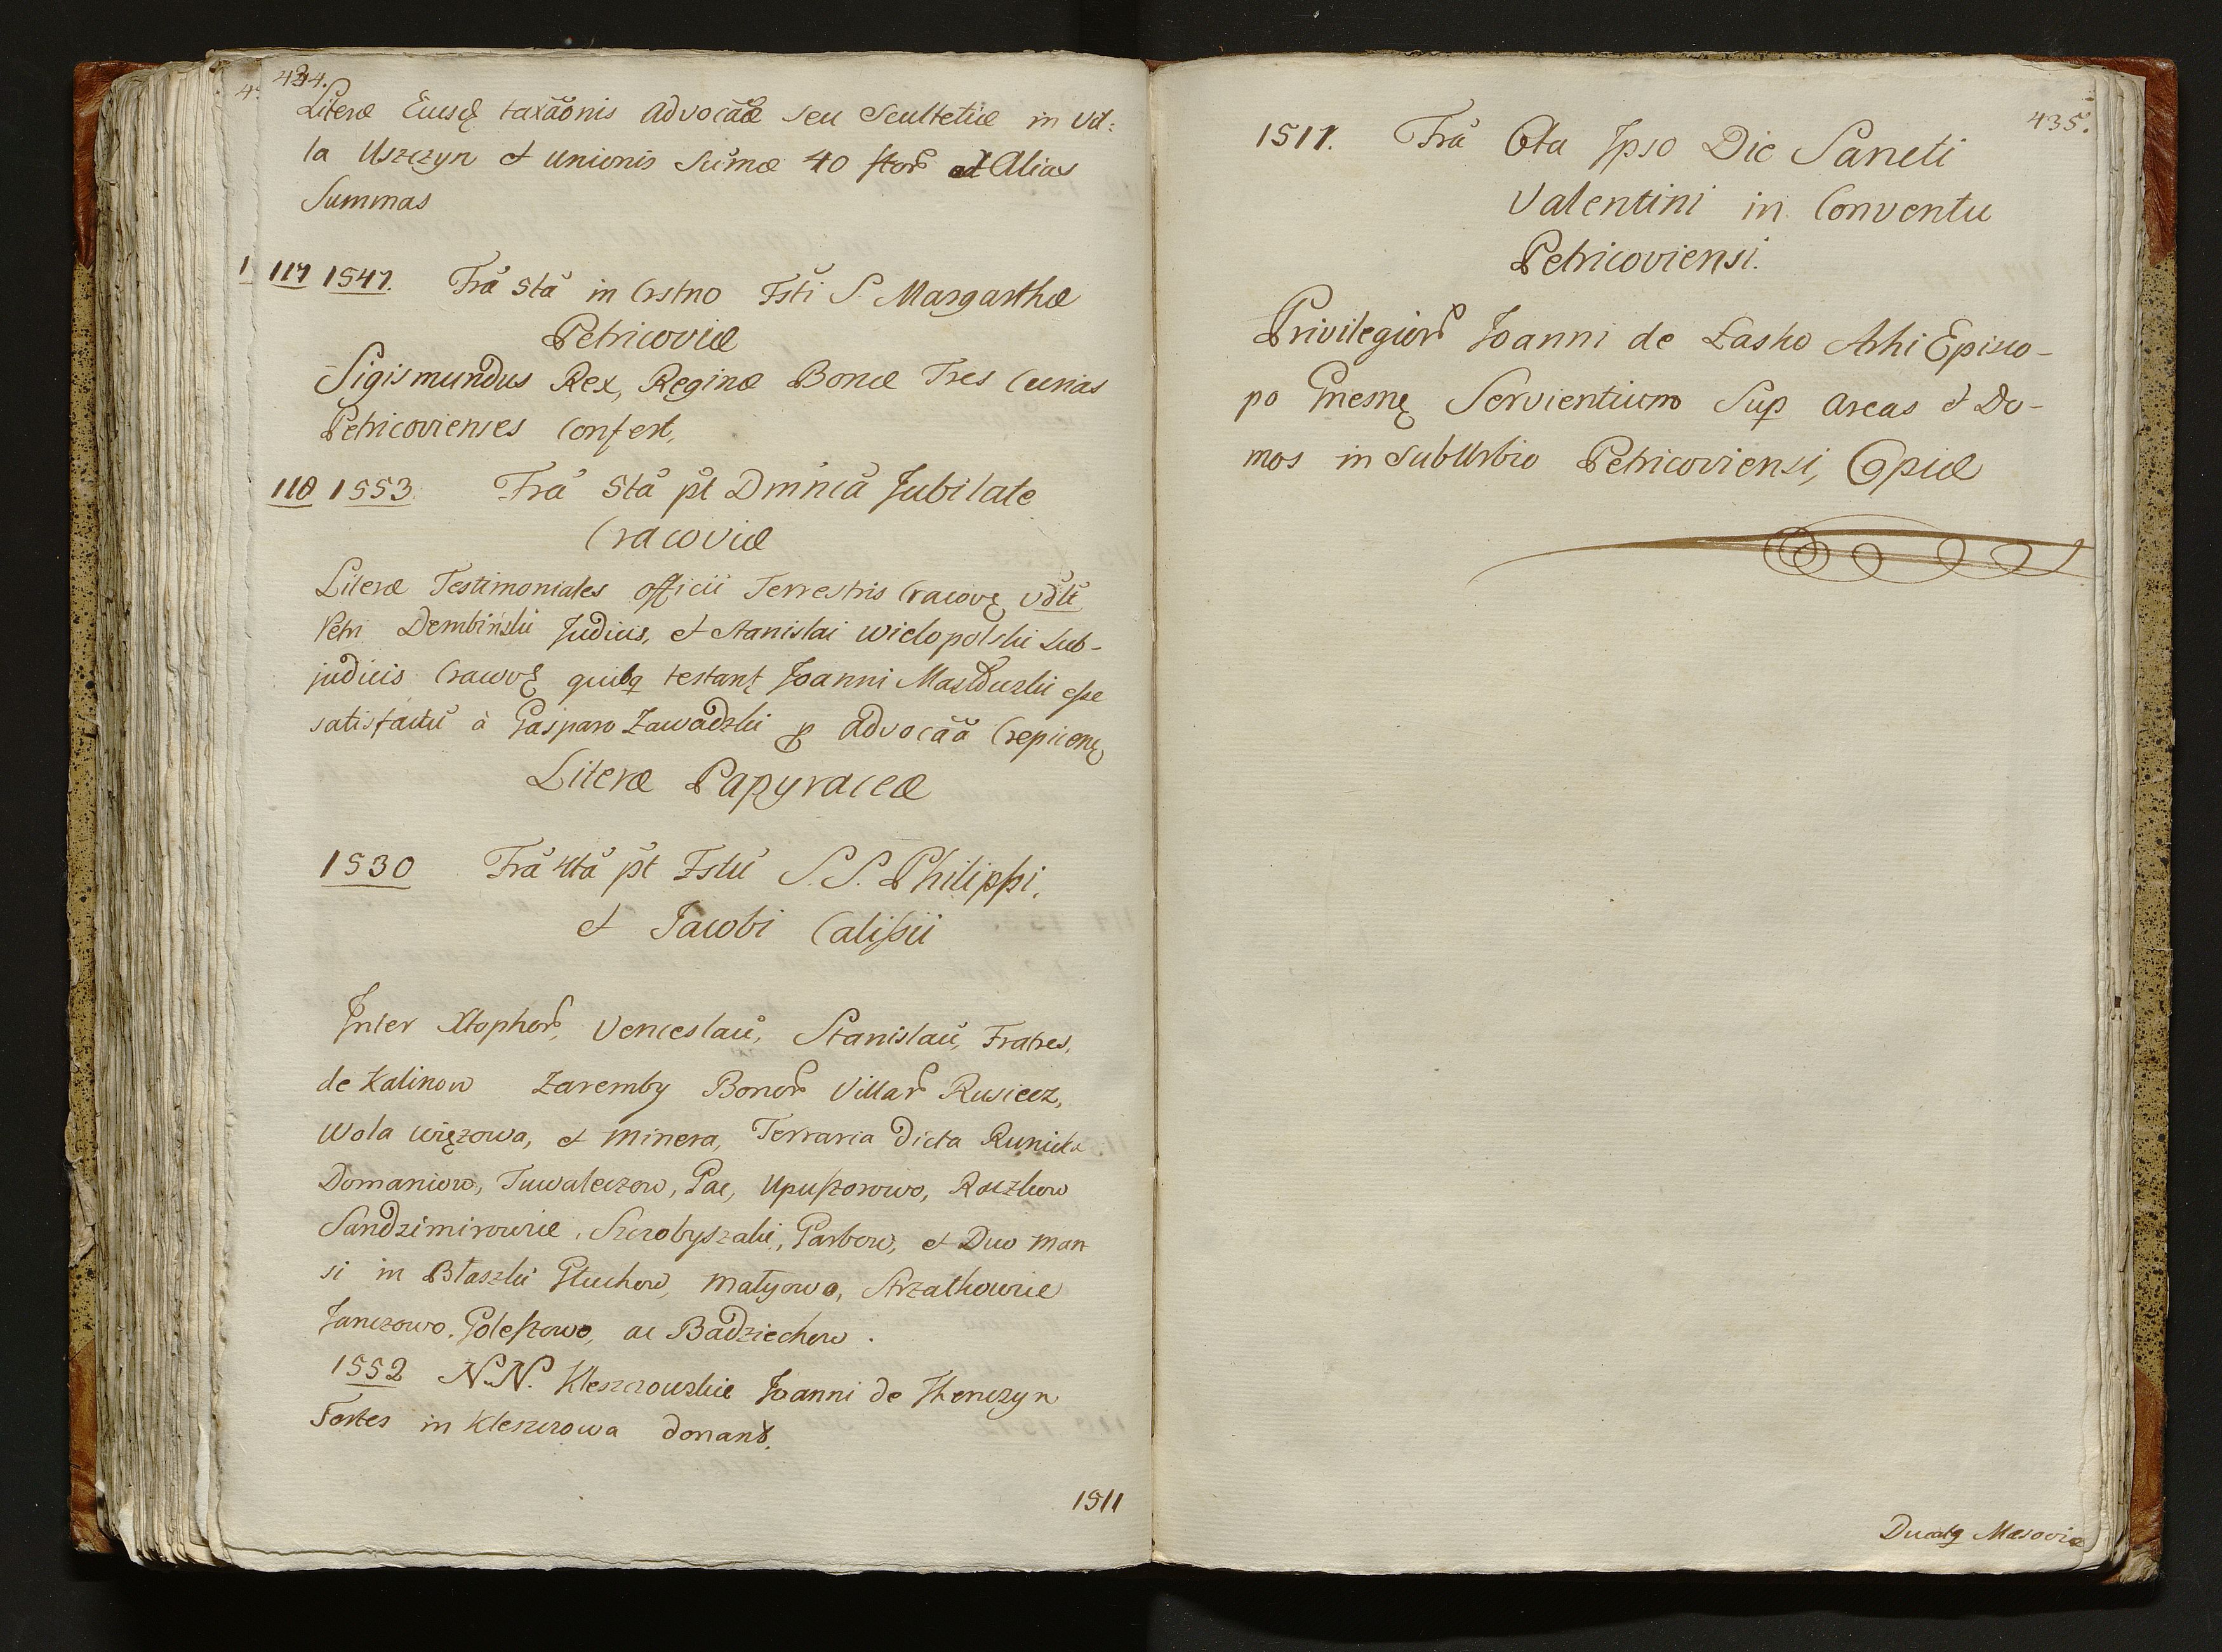 434.
Literæ Eiusq taxãõnis Advocãæ seu Scultetiæ in Vil:
la Uszczyn et Unionis Sum̃æ 40 flor ad Alias
Summas
117 1547. Fr̃a St̃a in Crstno Fsti S. Margarthæ
Petricoviæ
Sigismundus Rex, Reginæ Bonæ Tres Curias
Petricovienses Confert,
118 1553. Fr̃a St̃a p̃t Dmn̄ica Jubilate
Cracoviæ
Literæ Testimoniales Officii Terrestris Cracovę
Petri Dembiński Judicis, et Stanislai Wielopolski Sub-
judicis Cracovę quibq testantę Joanni esse
satisfactũ à Gasparo Zawadzki p Advocãã
Literæ Papyraceæ
1530 Fr̃a St̃a p̃t Fstũ S.S. Philippi,
et Jacobi Calissii
Inter Xtophor, Venceslaũ, Stanislaũ, Fratres,
de Kalinow Zaremby Bonor Villar Rusiecz,
Wola Więzowa, et Minera, Ferraria Dicta Runicka
Domaniow, Tuwaleczow, Pac, Upuszorowo, Roczkow
Sandzimirowice, Szczobyszaki, Garbow, et Duo Man
si in Błaszki Głuchow, Matyowo, Strzalkowice
Janczowo, Goleszowo, ac Badziechow.
1552 N.N. Kleszczowskie Joanni de Thenczyn
Sortes in Kleszczowa donant.
1511
435.
1511. Fr̃a Cta Ipso Die Sancti
Valentini in Conventu
Petricoviensi.
Privilegior Joanni de Łasko Arhi Episco-
po Gnesnę Servientium Sup Areas et Do-
mos in SubUrbio Petricoviensi, Copiæ
Ducatq Masoviæ